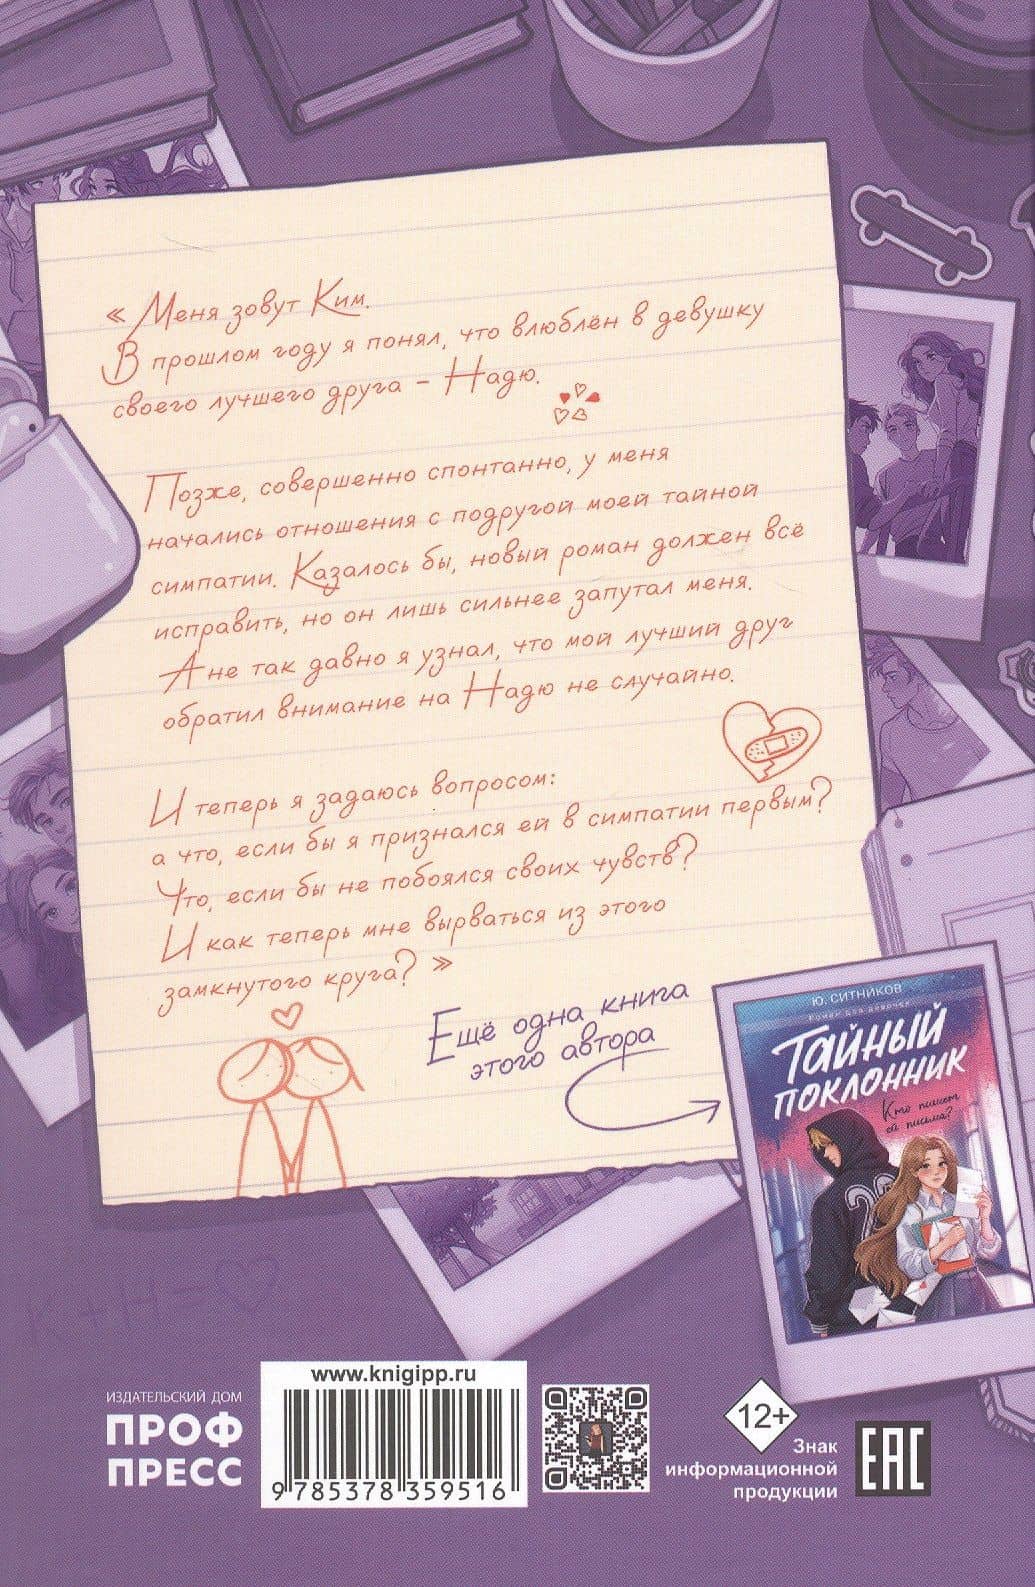 « Меня зовут Ким.
В прошлом году я понял, что влюблён в девушку
своего лучшего друга – Надю.
Позже, совершенно спонтанно, у меня
начались отношения с подругой моей тайной
симпатии. Казалось бы, новый роман должен всё
исправить, но он лишь сильнее запутал меня.
А не так давно я узнал, что мой лучший друг
обратил внимание на Надю не случайно.
И теперь я задаюсь вопросом:
а что, если бы я признался ей в симпатии первым?
Что, если бы не побоялся своих чувств?
И как теперь мне вырваться из этого
замкнутого круга? »
Ещё одна книга
этого автора
Ю. СИТНИКОВ
Роман для девочек
ТАЙНЫЙ
ПОКЛОННИК
Кто пишет
ей письма?
22
К + Н =
ИЗДАТЕЛЬСКИЙ ДОМ
ПРОФ
ПРЕСС
www.knigipp.ru
9 785378 359516
12+
Знак
информационной
продукции
EAC